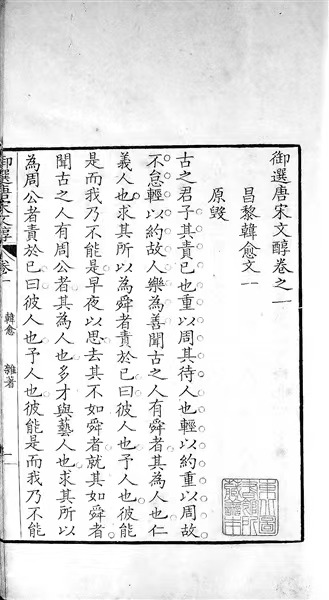 御選唐宋文醇卷之一
昌黎韓愈文一
原毀
古之君子其責已也重以周其待人也輕以約重以周故
不怠輕以約故人樂為善聞古之人有舜者其為人也仁
義人也求其所以為舜者責於已曰彼人也予人也彼能
是而我乃不能是早夜以思去其不如舜者就其如舜者
聞古之人有周公者其為人也多才與藝人也求其所以
為周公者責於已曰彼人也予人也彼能是而我乃不能
御選唐宋文醇
卷一
韓愈
雜著
一
東北圖
書館所
藏善本